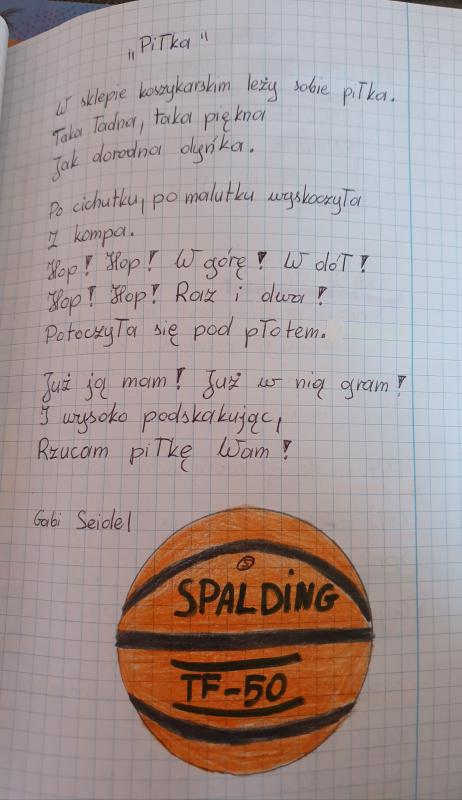 „Piłka"
W sklepie koszykarskim leży sobie piłka.
Taka ładna, taka piękna
Jak dorodna dyńka.
Po cichutku, po malutku wyskoczyła
Z kompa.
Hop! Hop! W górę! W dół!
Hop! Hop! Raz i dwa!
Potoczyła się pod płotem.
Już ją mam! Już w nią gram!
I wysoko podskakując,
Rzucam piłkę Wam!
Gabi Seidel
S
SPALDING
TF-50